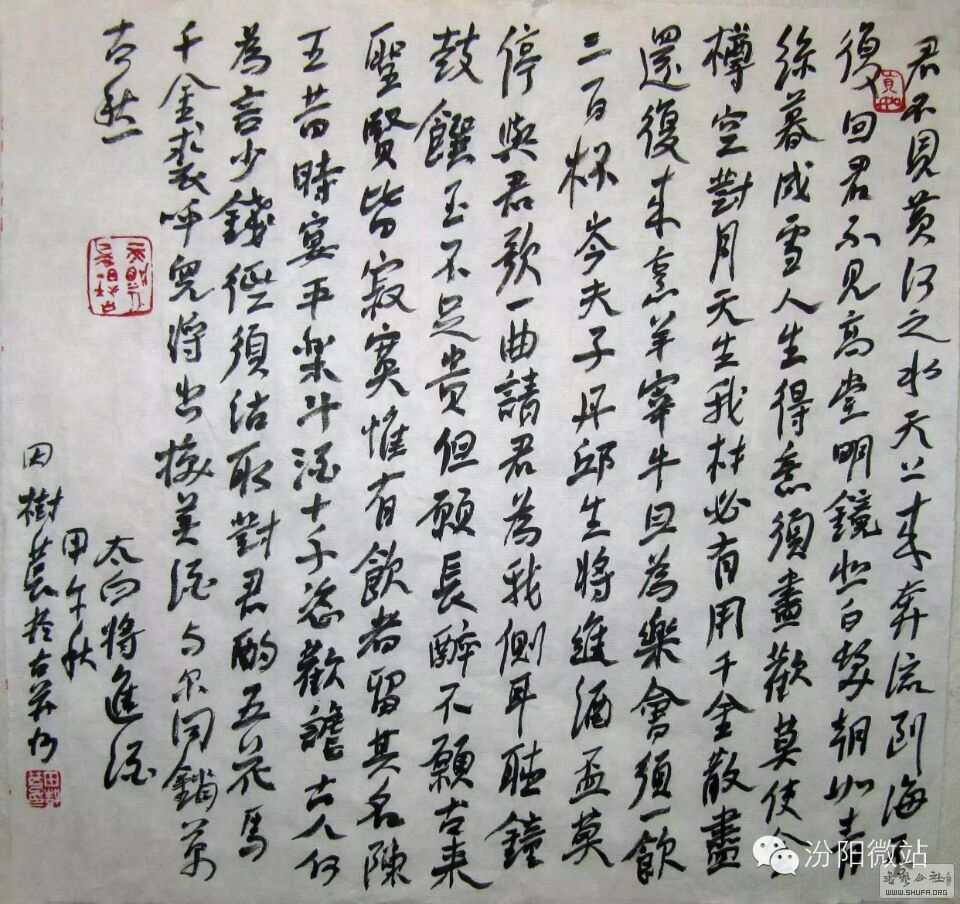 君不見黄河之水天上来奔流到海不
復回君不見高堂明鏡悲白髮朝如青
絲暮成雪人生得意須盡歡莫使金
樽空對月天生我材必有用千金散盡
還復来烹羊宰牛且為樂會須一飲
三百杯岑夫子丹邱生將進酒盃莫
停與君歌一曲請君為我側耳聴鐘
鼓饌玉不足貴但願長醉不願古来
聖賢皆寂寞惟有飲者留其名陳
王昔時宴平楽斗酒十千恣歡謔古人何
為言少錢徑須沽取對君酌五花馬
千金裘呼兒將出換美酒与尔同銷萬
古愁
太白將進酒
甲午秋
田樹萇於古并州
汾阳微站
书艺公社
WWW.SHUFA.ORG